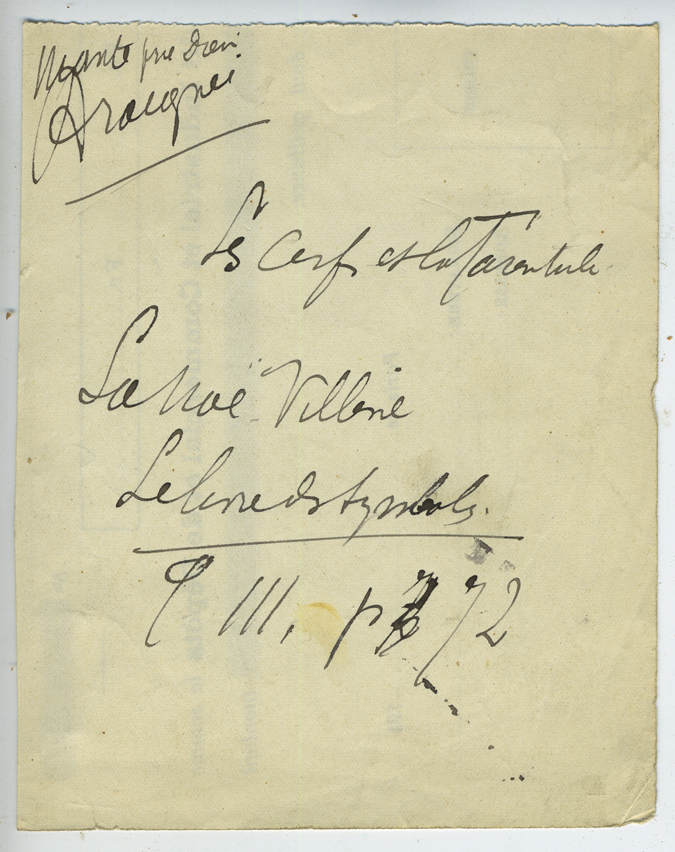 Mante prie Dieu.
Araignée
Le Cerf et la Tarentule
Lanoë-Villène
Le livre des symboles.
T III, p 72